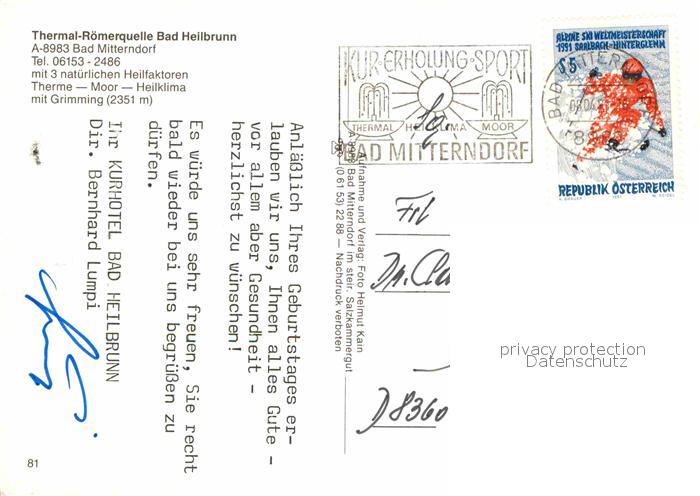 Thermal-Römerquelle Bad Heilbrunn
A-8983 Bad Mitterndorf
Tel. 06153 - 2486
mit 3 natürlichen Heilfaktoren
Therme — Moor — Heilklima
mit Grimming (2351 m)
Anläßlich Ihres Geburtstages er-
lauben wir uns, Ihnen alles Gute -
vor allem aber Gesundheit -
herzlichst zu wünschen!
Es würde uns sehr freuen, Sie recht
bald wieder bei uns begrüßen zu
dürfen.
Ihr KURHOTEL BAD HEILBRUNN
Dir. Bernhard Lumpi
81
Aufnahme und Verlag: Foto Helmut Kain
A-8983 Bad Mitterndorf im steir. Salzkammergut
(0 61 53) 22 88 — Nachdruck verboten
KUR·ERHOLUNG·SPORT
THERMAL HEILKLIMA MOOR
BAD MITTERNDORF
BAD MITTERNDORF
8983
ALPINE SKI WELTMEISTERSCHAFT
1991 SAALBACH-HINTERGLEMM
S 5
REPUBLIK ÖSTERREICH
1991
Frl
D 8360
privacy protection
Datenschutz